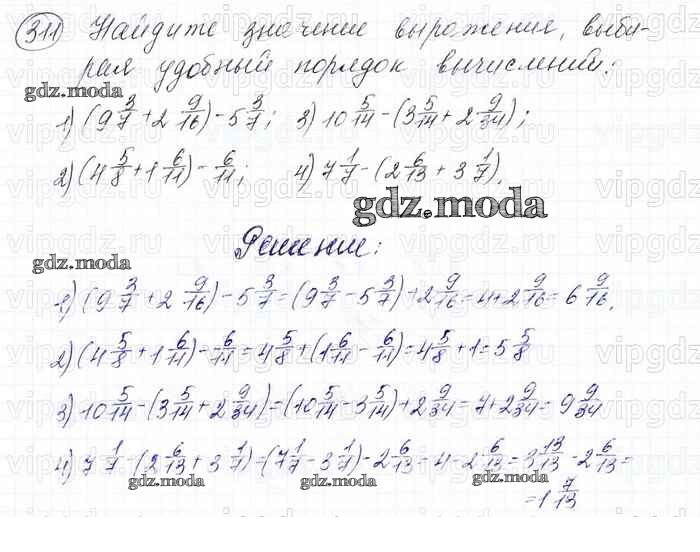 311 Найдите значение выражение, выби-
рая удобный порядок вычислений:
gdz.moda
1) (9 3/7 + 2 9/16) - 5 3/7; 3) 10 5/14 - (3 5/14 + 2 9/34);
2) (4 5/8 + 1 6/11) - 6/11; 4) 7 1/7 - (2 6/13 + 3 1/7).
gdz.moda
Решение:
gdz.moda
1) (9 3/7 + 2 9/16) - 5 3/7 = (9 3/7 - 5 3/7) + 2 9/16 = 4 + 2 9/16 = 6 9/16.
2) (4 5/8 + 1 6/11) - 6/11 = 4 5/8 + (1 6/11 - 6/11) = 4 5/8 + 1 = 5 5/8
3) 10 5/14 - (3 5/14 + 2 9/34) = (10 5/14 - 3 5/14) + 2 9/34 = 7 + 2 9/34 = 9 9/34
4) 7 1/7 - (2 6/13 + 3 1/7) = (7 1/7 - 3 1/7) - 2 6/13 = 4 - 2 6/13 = 3 13/13 - 2 6/13 =
= 1 7/13
gdz.moda gdz.moda gdz.moda